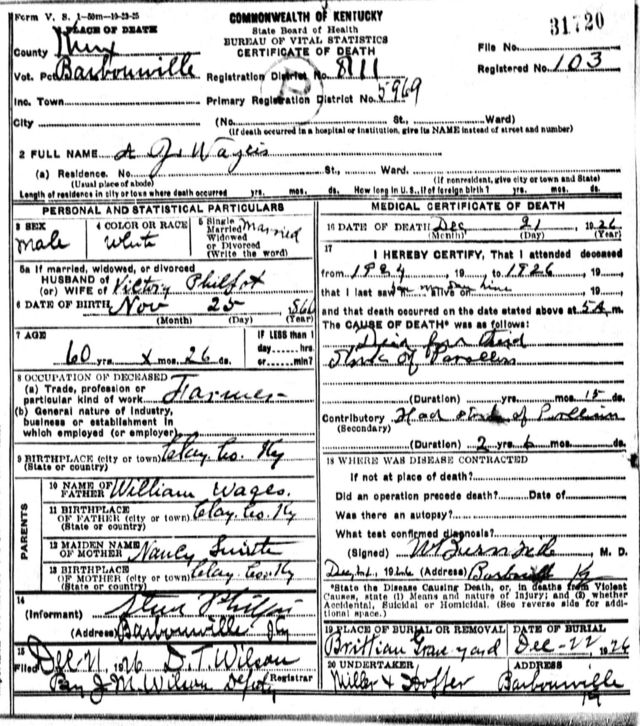 Form V. S. 1-50m-10-23-25
COMMONWEALTH OF KENTUCKY
State Board of Health
BUREAU OF VITAL STATISTICS
CERTIFICATE OF DEATH
31720
File No.
Registered No. 103
1 PLACE OF DEATH
County Knox
Vot. Pct Barbourville
Inc. Town
City
Registration District No. 8111
Primary Registration District No. 5969
(No. St., Ward)
(If death occurred in a hospital or institution, give its NAME instead of street and number)
2 FULL NAME A J Wages
(a) Residence. No. St., Ward.
(Usual place of abode) (If nonresident, give city or town and State)
Length of residence in city or town where death occurred yrs. mos. ds. How long in U.S., if of foreign birth? yrs. mos. ds.
PERSONAL AND STATISTICAL PARTICULARS
3 SEX
Male
4 COLOR OR RACE
White
5 Single
Married
Widowed
or Divorced
(Write the word)
Married
5a If married, widowed, or divorced
HUSBAND OF
(or) WIFE OF Philpot
6 DATE OF BIRTH Nov 25 866
(Month) (Day) (Year)
7 AGE
60 yrs. x mos. 26 ds.
IF LESS than 1
day------hrs.
or------min?
8 OCCUPATION OF DECEASED
(a) Trade, profession or
particular kind of work Farmer
(b) General nature of industry,
business or establishment in
which employed (or employer)
9 BIRTHPLACE (city or town) Clay Co. Ky
(State or country)
PARENTS
10 NAME OF
FATHER William Wages.
11 BIRTHPLACE
OF FATHER (city or town) Clay Co. Ky
(State or country)
12 MAIDEN NAME
OF MOTHER Nancy
13 BIRTHPLACE
OF MOTHER (city or town) Clay Co. Ky
(State or country)
14
(Informant)
(Address) Barbourville Ky
15
Filed Dec-21, 1926 D. T. Wilson
Registrar
By J. M. Wilson Deputy
MEDICAL CERTIFICATE OF DEATH
16 DATE OF DEATH Dec 21, 1926
(Month) (Day) (Year)
17
I HEREBY CERTIFY, That I attended deceased
from 1924, 19 to 1926, 19
that I last saw alive on 19
and that death occurred on the date stated above at 5 A m.
The CAUSE OF DEATH* was as follows:
Died from third
Stroke of
(Duration) yrs. mos. 15 ds.
Contributory Had stroke of
(Secondary)
(Duration) 2 yrs. 6 mos. ds.
18 WHERE WAS DISEASE CONTRACTED
If not at place of death?
Did an operation precede death? Date of
Was there an autopsy?
What test confirmed diagnosis?
(Signed) M. D.
1926 (Address) Barbourville Ky
*State the Disease Causing Death, or, in deaths from Violent
Causes, state (1) Means and nature of Injury; and (2) whether
Accidental, Suicidal or Homicidal. (See reverse side for addi-
tional space.)
19 PLACE OF BURIAL OR REMOVAL
Brittian Grave yard
DATE OF BURIAL
Dec-22 1926
20 UNDERTAKER
Miller & Hoffer
ADDRESS
Barbourville
Ky